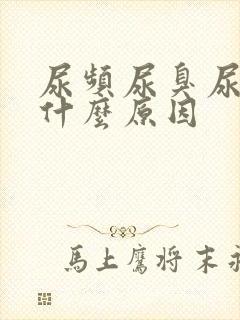 尿頻尿臭尿
什麼原因
馬上鷹将末